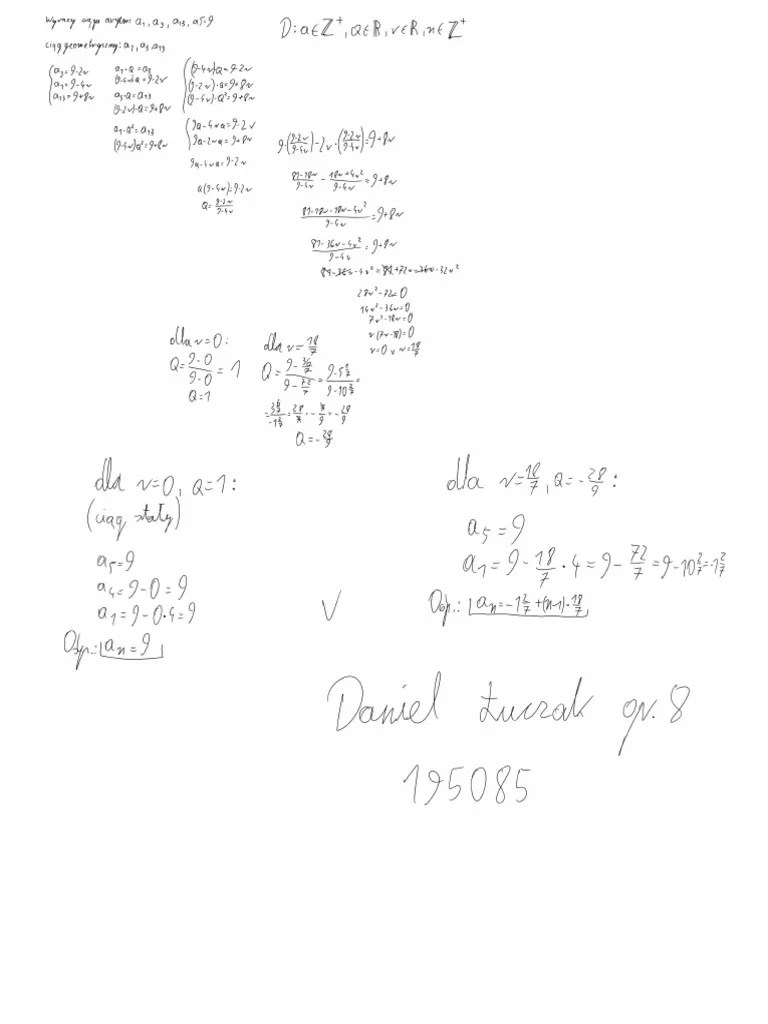 Wyrazy ciągu arytm.: a₁, a₃, a₁₃, a5=9
D: a∈ℤ⁺, Q∈ℝ, r∈ℝ, n∈ℤ⁺
ciąg geometryczny: a₁, a₃, a₁₃
a₃=9-2r
a₁=9-4r
a₁₃=9+8r
a₁·Q=a₃
(9-4r)Q=9-2r
a₃·Q=a₁₃
(9-2r)·Q=9+8r
a₁·Q²=a₁₃
(9-4r)Q²=9+8r
(9-4r)Q=9-2r
(9-2r)·Q=9+8r
(9-4r)·Q²=9+8r
9Q-4rQ=9-2r
9Q-2rQ=9+8r
9Q-4rQ=9-2r
Q(9-4r)=9-2r
Q=(9-2r)/(9-4r)
9·((9-2r)/(9-4r))-2r·((9-2r)/(9-4r))=9+8r
(81-18r)/(9-4r) - (18r+4r²)/(9-4r)=9+8r
(81-18r-18r-4r²)/(9-4r)=9+8r
(81-36r-4r²)/(9-4r)=9+8r
81-36r-4r²=81+72r-36r-32r²
28r²-72=0
14r²-36r=0
7r²-18r=0
r(7r-18)=0
r=0 ∨ r=18/7
dla r=0:
Q=(9-0)/(9-0)=1
Q=1
dla r=18/7
Q=(9-36/7)/(9-72/7)=(9-5 1/7)/(9-10 2/7)=
Q=-28/9
dla r=0, Q=1:
(ciąg stały)
a₅=9
a₄=9-0=9
a₁=9-0·4=9
Odp.: aₙ=9
V
dla r=18/7, Q=-28/9:
a₅=9
a₁=9-18/7·4=9-72/7=9-10 2/7=-1 2/7
Odp.: aₙ=-1 2/7+(n-1)·18/7
Daniel Łuczak gr. 8
195085